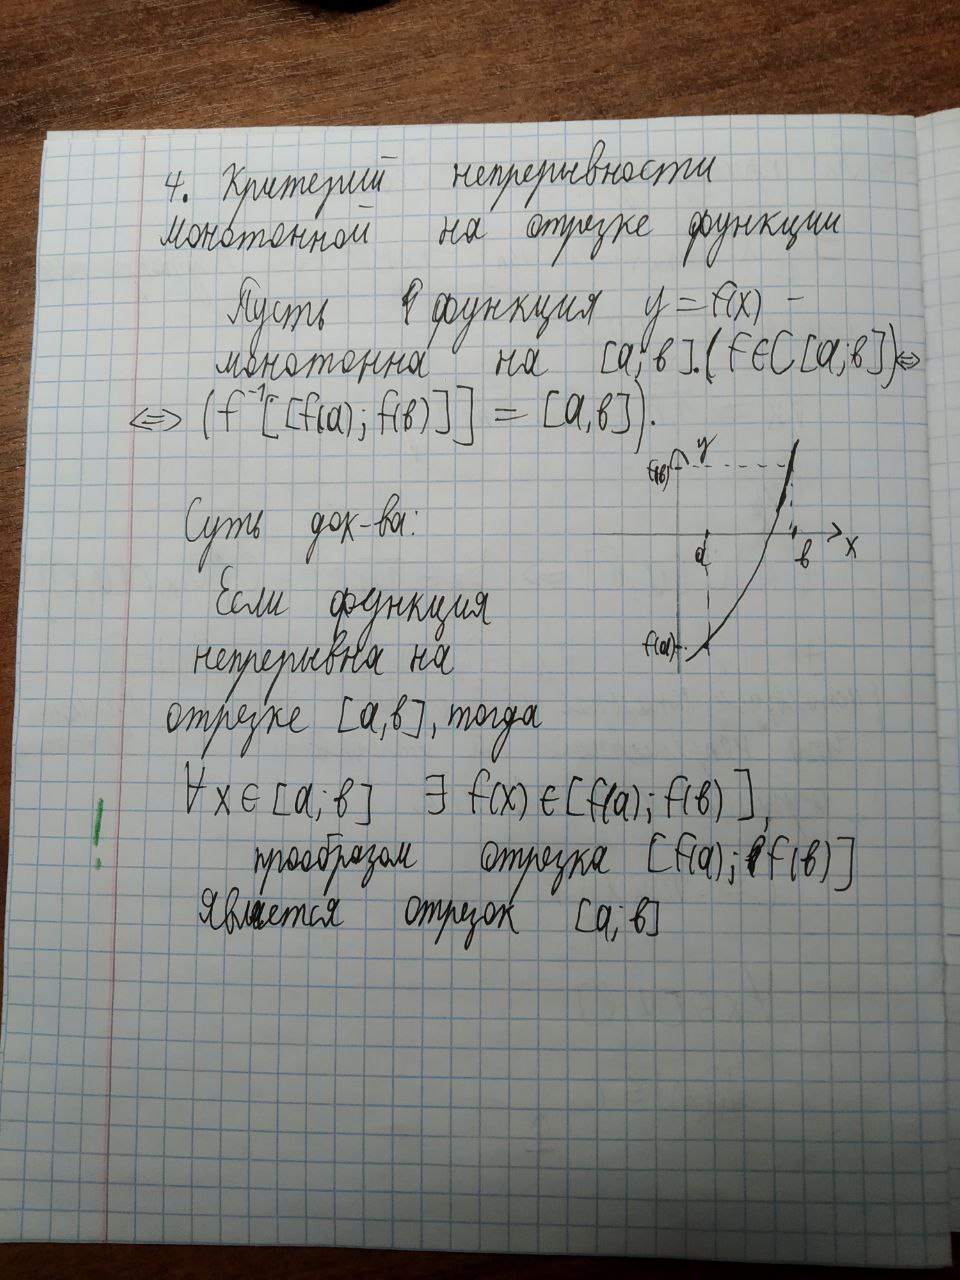 4. Критерий непрерывности
монотонной на отрезке функции
Пусть функция y = f(x) –
монотонна на [a;в]. (f∈C[a;в])⇔
⇔ (f⁻¹[[f(a); f(в)]] = [a,в]).
y
f(в)
a
в
x
f(a)
Суть док-ва:
Если функция
непрерывна на
отрезке [a,в], тогда
∀x∈[a;в] ∃ f(x)∈[f(a); f(в)],
!
прообразом отрезка [f(a); f(в)]
является отрезок [a;в]